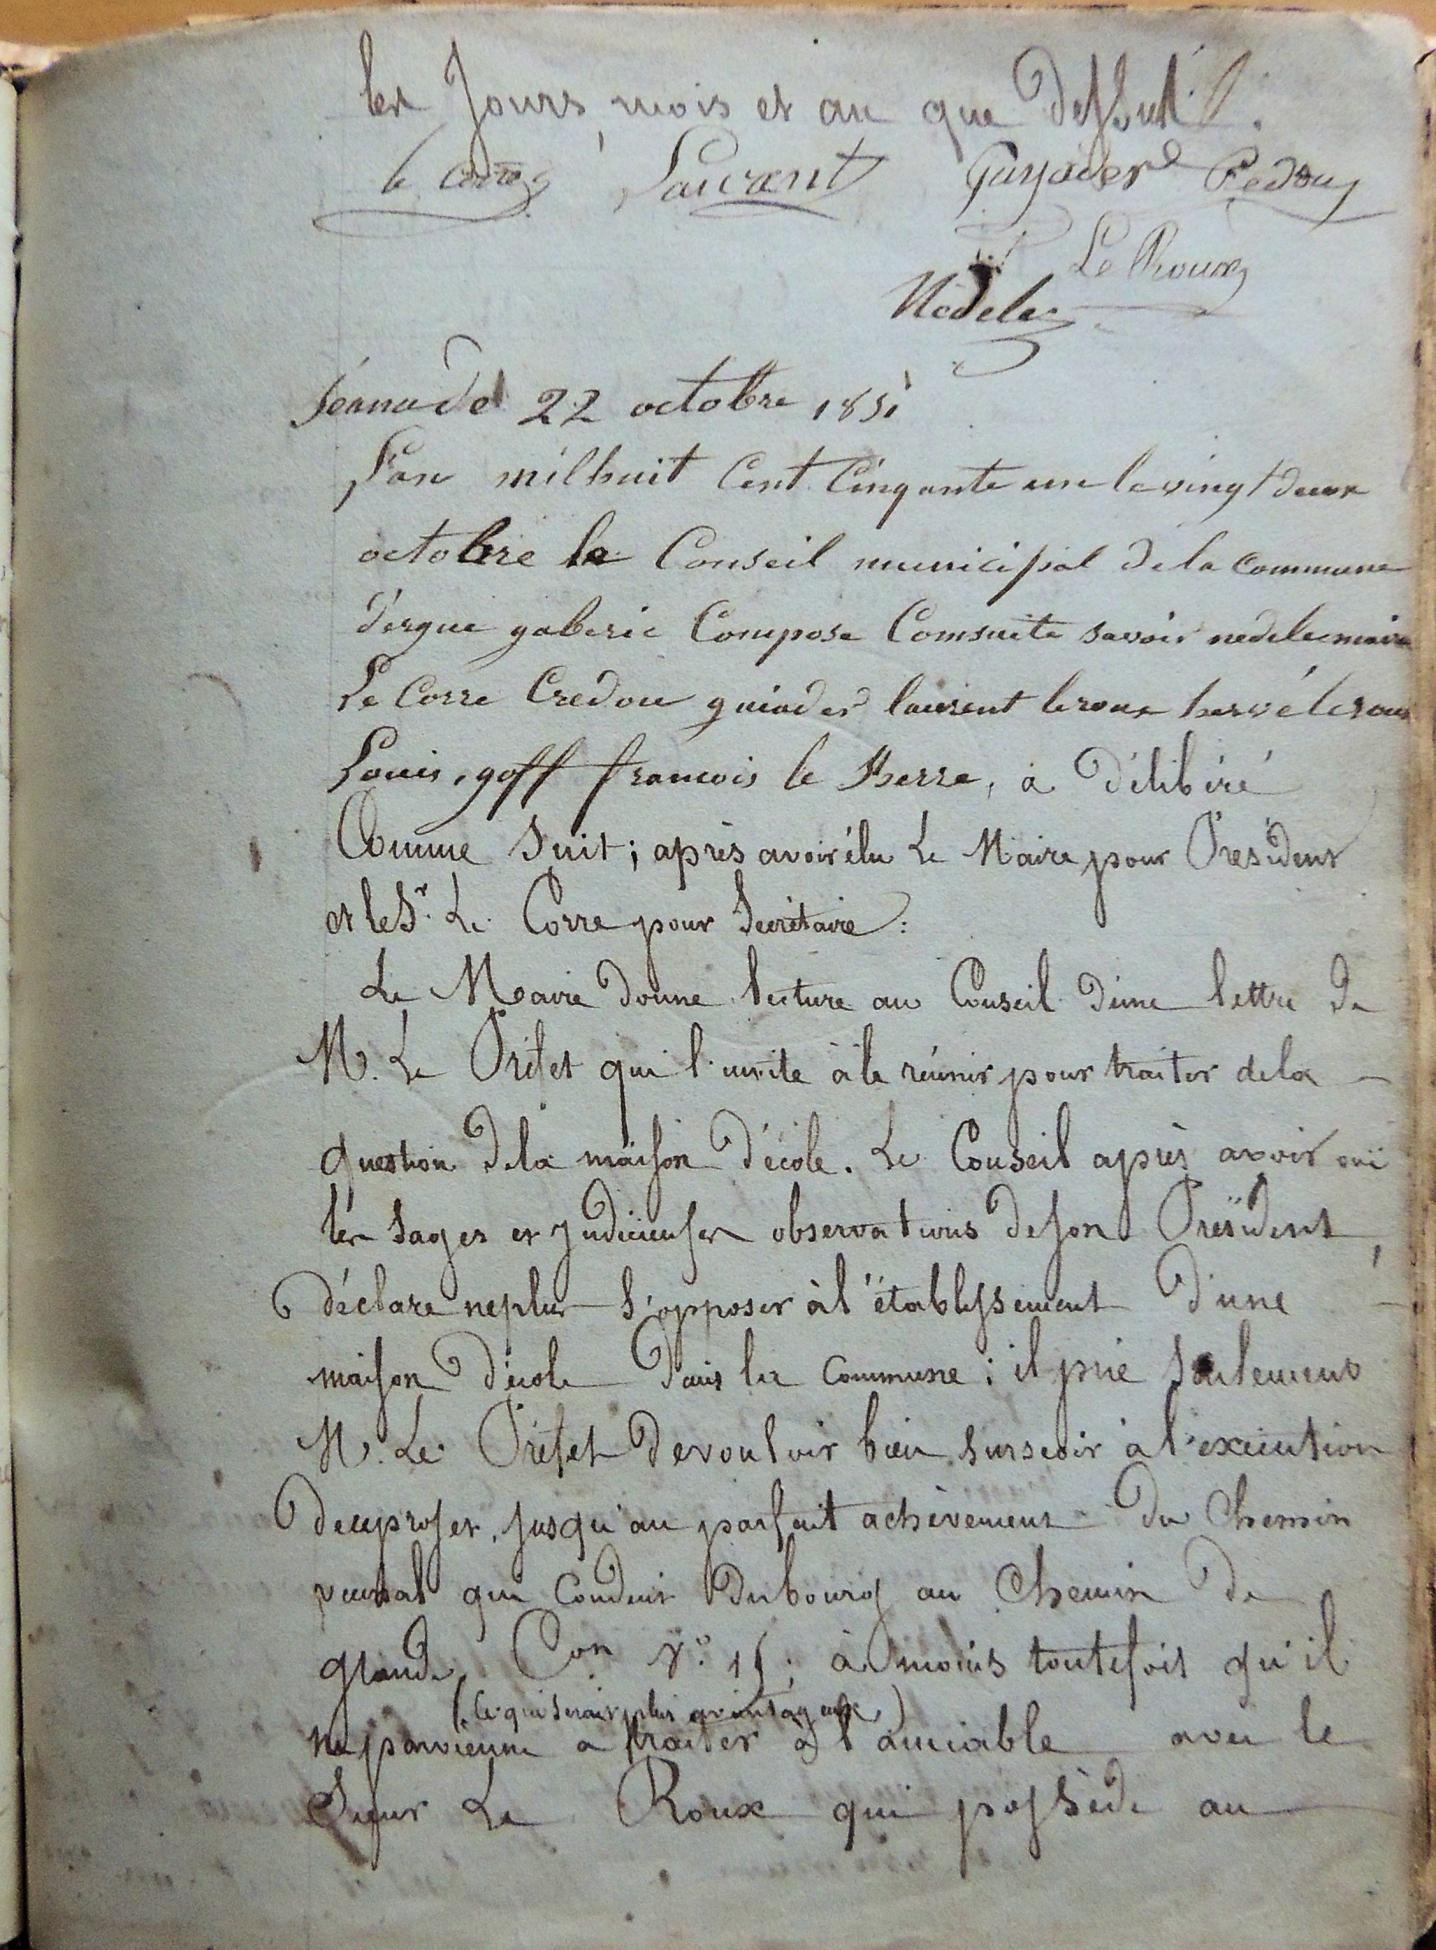 les Jours, mois et an que dessus.
le corre Laurent Guyader Credou
Le Roux
Nédelec
Séance de 22 octobre 1851
L'an mil huit Cent Cinqante un le vingt deux
octobre le Conseil municipal de la commune
d'ergue gaberic Compose Comsuite savoir nedelec maire
Le Corre Credou guiader laurent leroux hervé leroux
Louis, goff francois le Berre, à délibéré
Comme Suit; après avoir élu Le Maire pour Président
et le Sr. Le Corre pour Secrétaire:
Le Maire donne lecture au Conseil d'une lettre de
M. Le Préfet qui l'invite à le réunir pour traiter de la
question de la maison d'école. Le Conseil après avoir ouï
les sages et judicieuses observations de son Président,
déclare ne plus s'opposer à l'établissement d'une
maison d'école dans la commune; il prie seulement
M. Le Préfet de vouloir bien surseoir à l'exécution
de ce projet, jusqu'au parfait achèvement du Chemin
vicinal qui conduit du bourg au Chemin de
grande Con No. 15; à moins toutefois qu'il
(ce qui serait plus avantageux)
ne parvienne à traiter à l'amiable avec le
Sieur Le Roux qui possède au